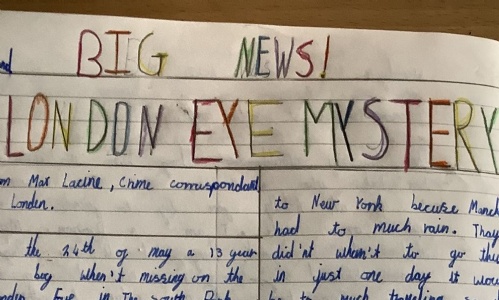 BIG NEWS!
LONDON EYE MYSTERY
Max Lacine, Crime correspondant
London.
the 24th of may a 13 year
boy when't missing on the
Eye in The south
to New York becuse
had to much rain. Thay
did'nt whan't to go
in just one day it
to much